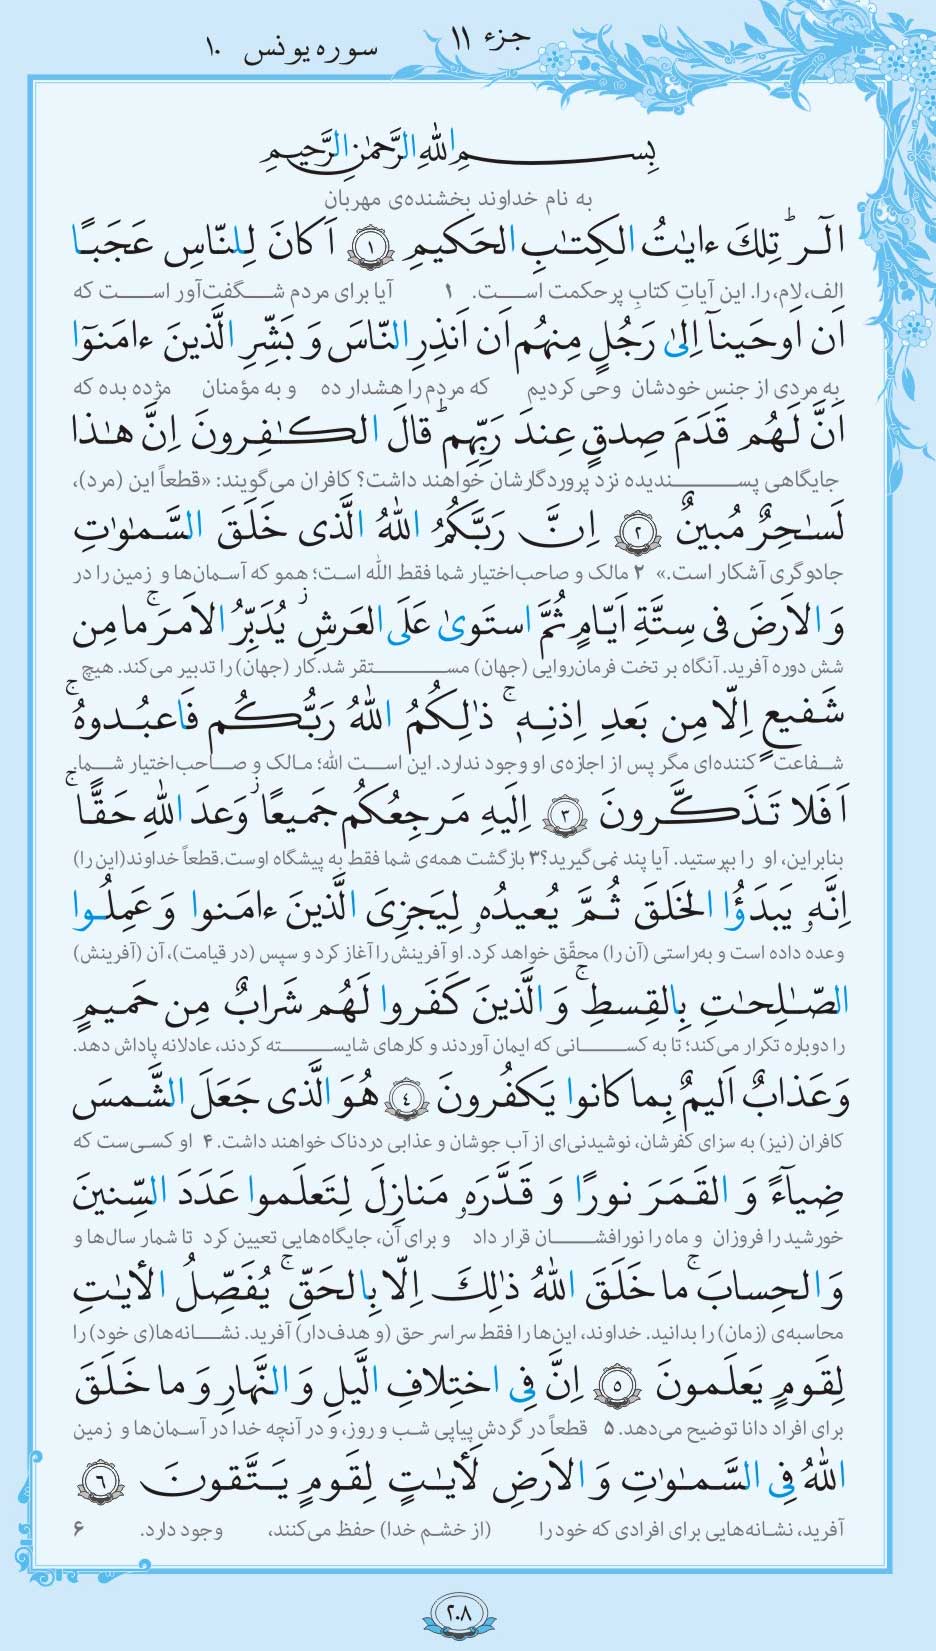 جزء ١١
سوره یونس ١٠
بِسمِ اللهِ الرَّحمٰنِ الرَّحیمِ
به نام خداوند بخشنده‌ی مهربان
الٓرٰ ۚ تِلكَ ءایٰتُ الكِتٰبِ الحَكیمِ ﴿١﴾ اَكانَ لِلنّاسِ عَجَبًا
الف، لام، را. این آیاتِ کتابِ پرحکمت است. ۱ آیا برای مردم شگفت‌آور است که
اَن اَوحَینآ اِلیٰ رَجُلٍ مِنهُم اَن اَنذِرِ النّاسَ وَ بَشِّرِ الَّذینَ ءامَنوٓا
به مردی از جنس خودشان وحی کردیم که مردم را هشدار ده و به مؤمنان مژده بده که
اَنَّ لَهُم قَدَمَ صِدقٍ عِندَ رَبِّهِم ۗ قالَ الكٰفِرونَ اِنَّ هٰذا
جایگاهی پسندیده نزد پروردگارشان خواهند داشت؟ کافران می‌گویند: «قطعاً این (مرد)،
لَسٰحِرٌ مُبینٌ ﴿٢﴾ اِنَّ رَبَّكُمُ اللهُ الَّذی خَلَقَ السَّمٰوٰتِ
جادوگری آشکار است.» ۲ مالک و صاحب‌اختیار شما فقط الله است؛ همو که آسمان‌ها و زمین را در
وَ الاَرضَ فی سِتَّةِ اَیّامٍ ثُمَّ استَویٰ عَلَی العَرشِ ۖ یُدَبِّرُ الاَمرَ ۚ ما مِن
شش دوره آفرید. آنگاه بر تخت فرمان‌روایی (جهان) مستقر شد. کار (جهان) را تدبیر می‌کند. هیچ
شَفیعٍ اِلّا مِن بَعدِ اِذنِهٖ ۚ ذٰلِكُمُ اللهُ رَبُّكُم فَاعبُدوهُ ۚ
شفاعت کننده‌ای مگر پس از اجازه‌ی او وجود ندارد. این است الله؛ مالک و صاحب‌اختیار شما.
اَفَلا تَذَكَّرونَ ﴿٣﴾ اِلَیهِ مَرجِعُكُم جَمیعًا ۖ وَعدَ اللهِ حَقًّا ۚ
بنابراین، او را بپرستید. آیا پند نمی‌گیرید؟ ۳ بازگشت همه‌ی شما فقط به پیشگاه اوست. قطعاً خداوند (این را)
اِنَّهٗ یَبدَؤُا الخَلقَ ثُمَّ یُعیدُهٗ لِیَجزِیَ الَّذینَ ءامَنوا وَ عَمِلُوا
وعده داده است و به‌راستی (آن را) محقّق خواهد کرد. او آفرینش را آغاز کرد و سپس (در قیامت)، آن (آفرینش)
الصّٰلِحٰتِ بِالقِسطِ ۚ وَ الَّذینَ كَفَروا لَهُم شَرابٌ مِن حَمیمٍ
را دوباره تکرار می‌کند؛ تا به کسانی که ایمان آوردند و کارهای شایسته کردند، عادلانه پاداش دهد.
وَ عَذابٌ اَلیمٌ بِما كانوا یَكفُرونَ ﴿٤﴾ هُوَ الَّذی جَعَلَ الشَّمسَ
کافران (نیز) به سزای کفرشان، نوشیدنی‌ای از آب جوشان و عذابی دردناک خواهند داشت. ۴ او کسی‌ست که
ضِیآءً وَ القَمَرَ نورًا وَ قَدَّرَهٗ مَنازِلَ لِتَعلَموا عَدَدَ السِّنینَ
خورشید را فروزان و ماه را نورافشان قرار داد و برای آن، جایگاه‌هایی تعیین کرد تا شمار سال‌ها و
وَ الحِسابَ ۚ ما خَلَقَ اللهُ ذٰلِكَ اِلّا بِالحَقِّ ۚ یُفَصِّلُ الأیٰتِ
محاسبه‌ی (زمان) را بدانید. خداوند، این‌ها را فقط سراسر حق (و هدف‌دار) آفرید. نشانه‌ها(ی خود) را
لِقَومٍ یَعلَمونَ ﴿٥﴾ اِنَّ فِی اختِلافِ الَّیلِ وَ النَّهارِ وَ ما خَلَقَ
برای افراد دانا توضیح می‌دهد. ۵ قطعاً در گردش پیاپی شب و روز، و در آنچه خدا در آسمان‌ها و زمین
اللهُ فِی السَّمٰوٰتِ وَ الاَرضِ لَأیٰتٍ لِقَومٍ یَتَّقونَ ﴿٦﴾
آفرید، نشانه‌هایی برای افرادی که خود را (از خشم خدا) حفظ می‌کنند، وجود دارد. ۶
٢٠٨